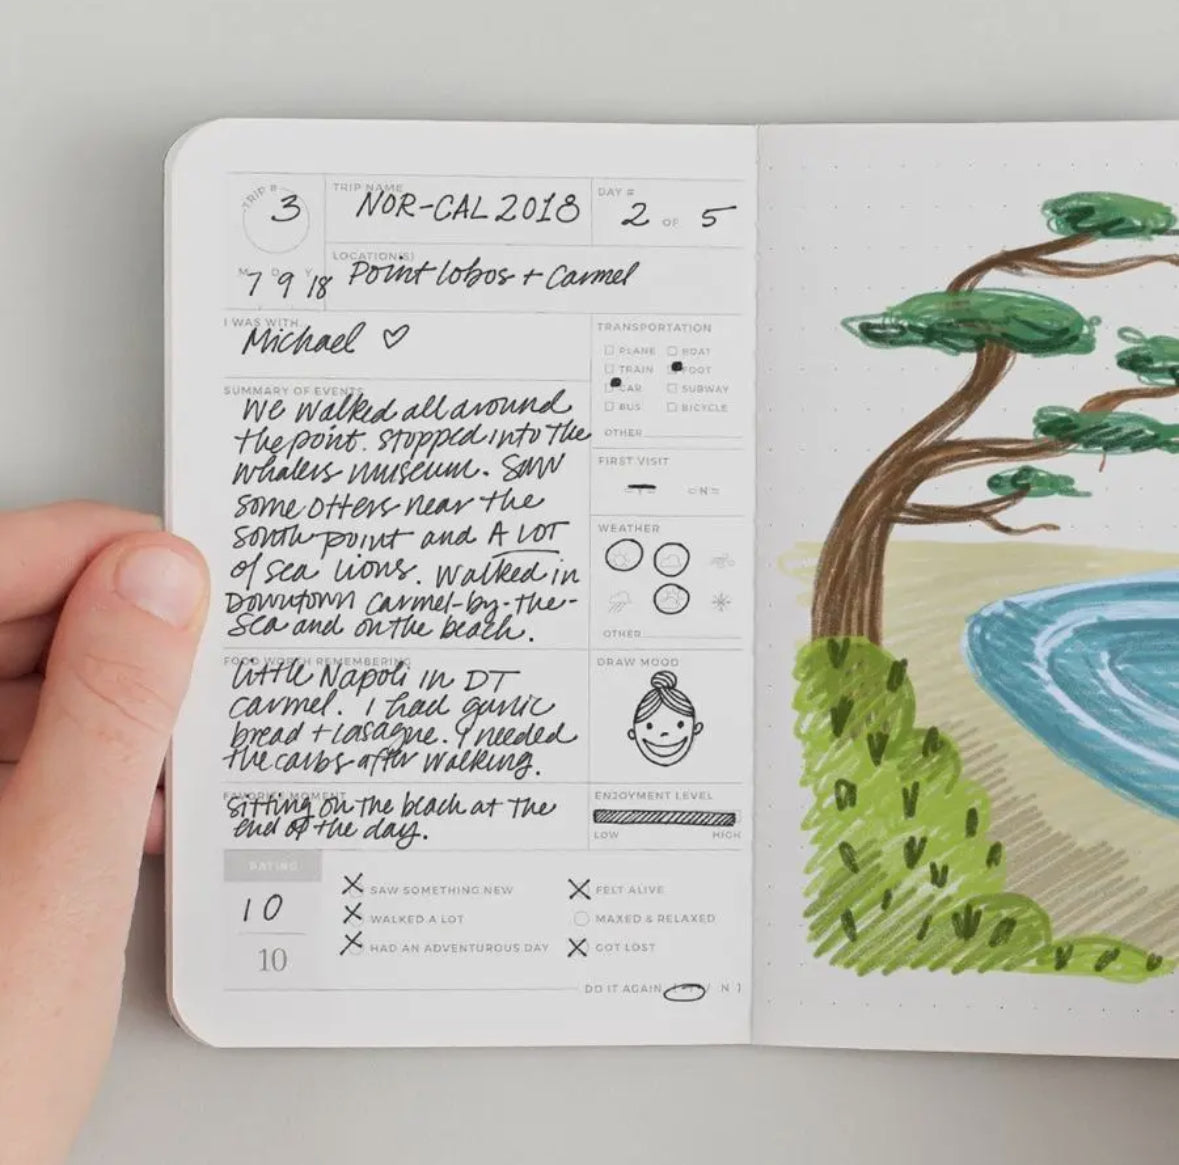 TRIP #
3
TRIP NAME
NOR-CAL 2018
DAY #
2 OF 5
M D Y
7 9 18
LOCATION(S)
Point lobos + Carmel
I WAS WITH
Michael ♡
TRANSPORTATION
PLANE BOAT
TRAIN FOOT
CAR SUBWAY
BUS BICYCLE
OTHER
SUMMARY OF EVENTS
We walked all around
the point. stopped into the
whalers museum. Saw
some otters near the
south point and A LOT
of sea lions. Walked in
Downtown Carmel-by-the-
Sea and on the beach.
FIRST VISIT
Y N
WEATHER
OTHER
FOOD WORTH REMEMBERING
little Napoli in DT
carmel. I had garlic
bread + lasagne. I needed
the carbs after walking.
DRAW MOOD
FAVORITE MOMENT
Sitting on the beach at the
end of the day.
ENJOYMENT LEVEL
LOW HIGH
RATING
10
10
SAW SOMETHING NEW
WALKED A LOT
HAD AN ADVENTUROUS DAY
FELT ALIVE
MAXED & RELAXED
GOT LOST
DO IT AGAIN ( Y / N )